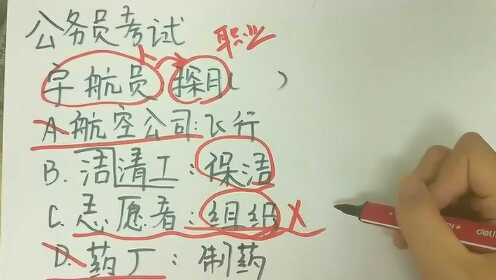 公务员考试
职业
宇航员 探月( )
A.航空公司:飞行
B.洁清工:保洁
C.志愿者:组织
D.药厂:制药
deli